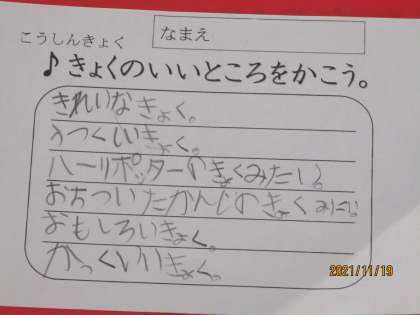 なまえ
こうしんきょく
♪きょくのいいところをかこう。
きれいなきょく。
うつくしいきょく。
ハーリポッターのきょくみたい。
おちついたかんじのきょくみたい
おもしろいきょく。
かっくいいきょく。
2021/11/19